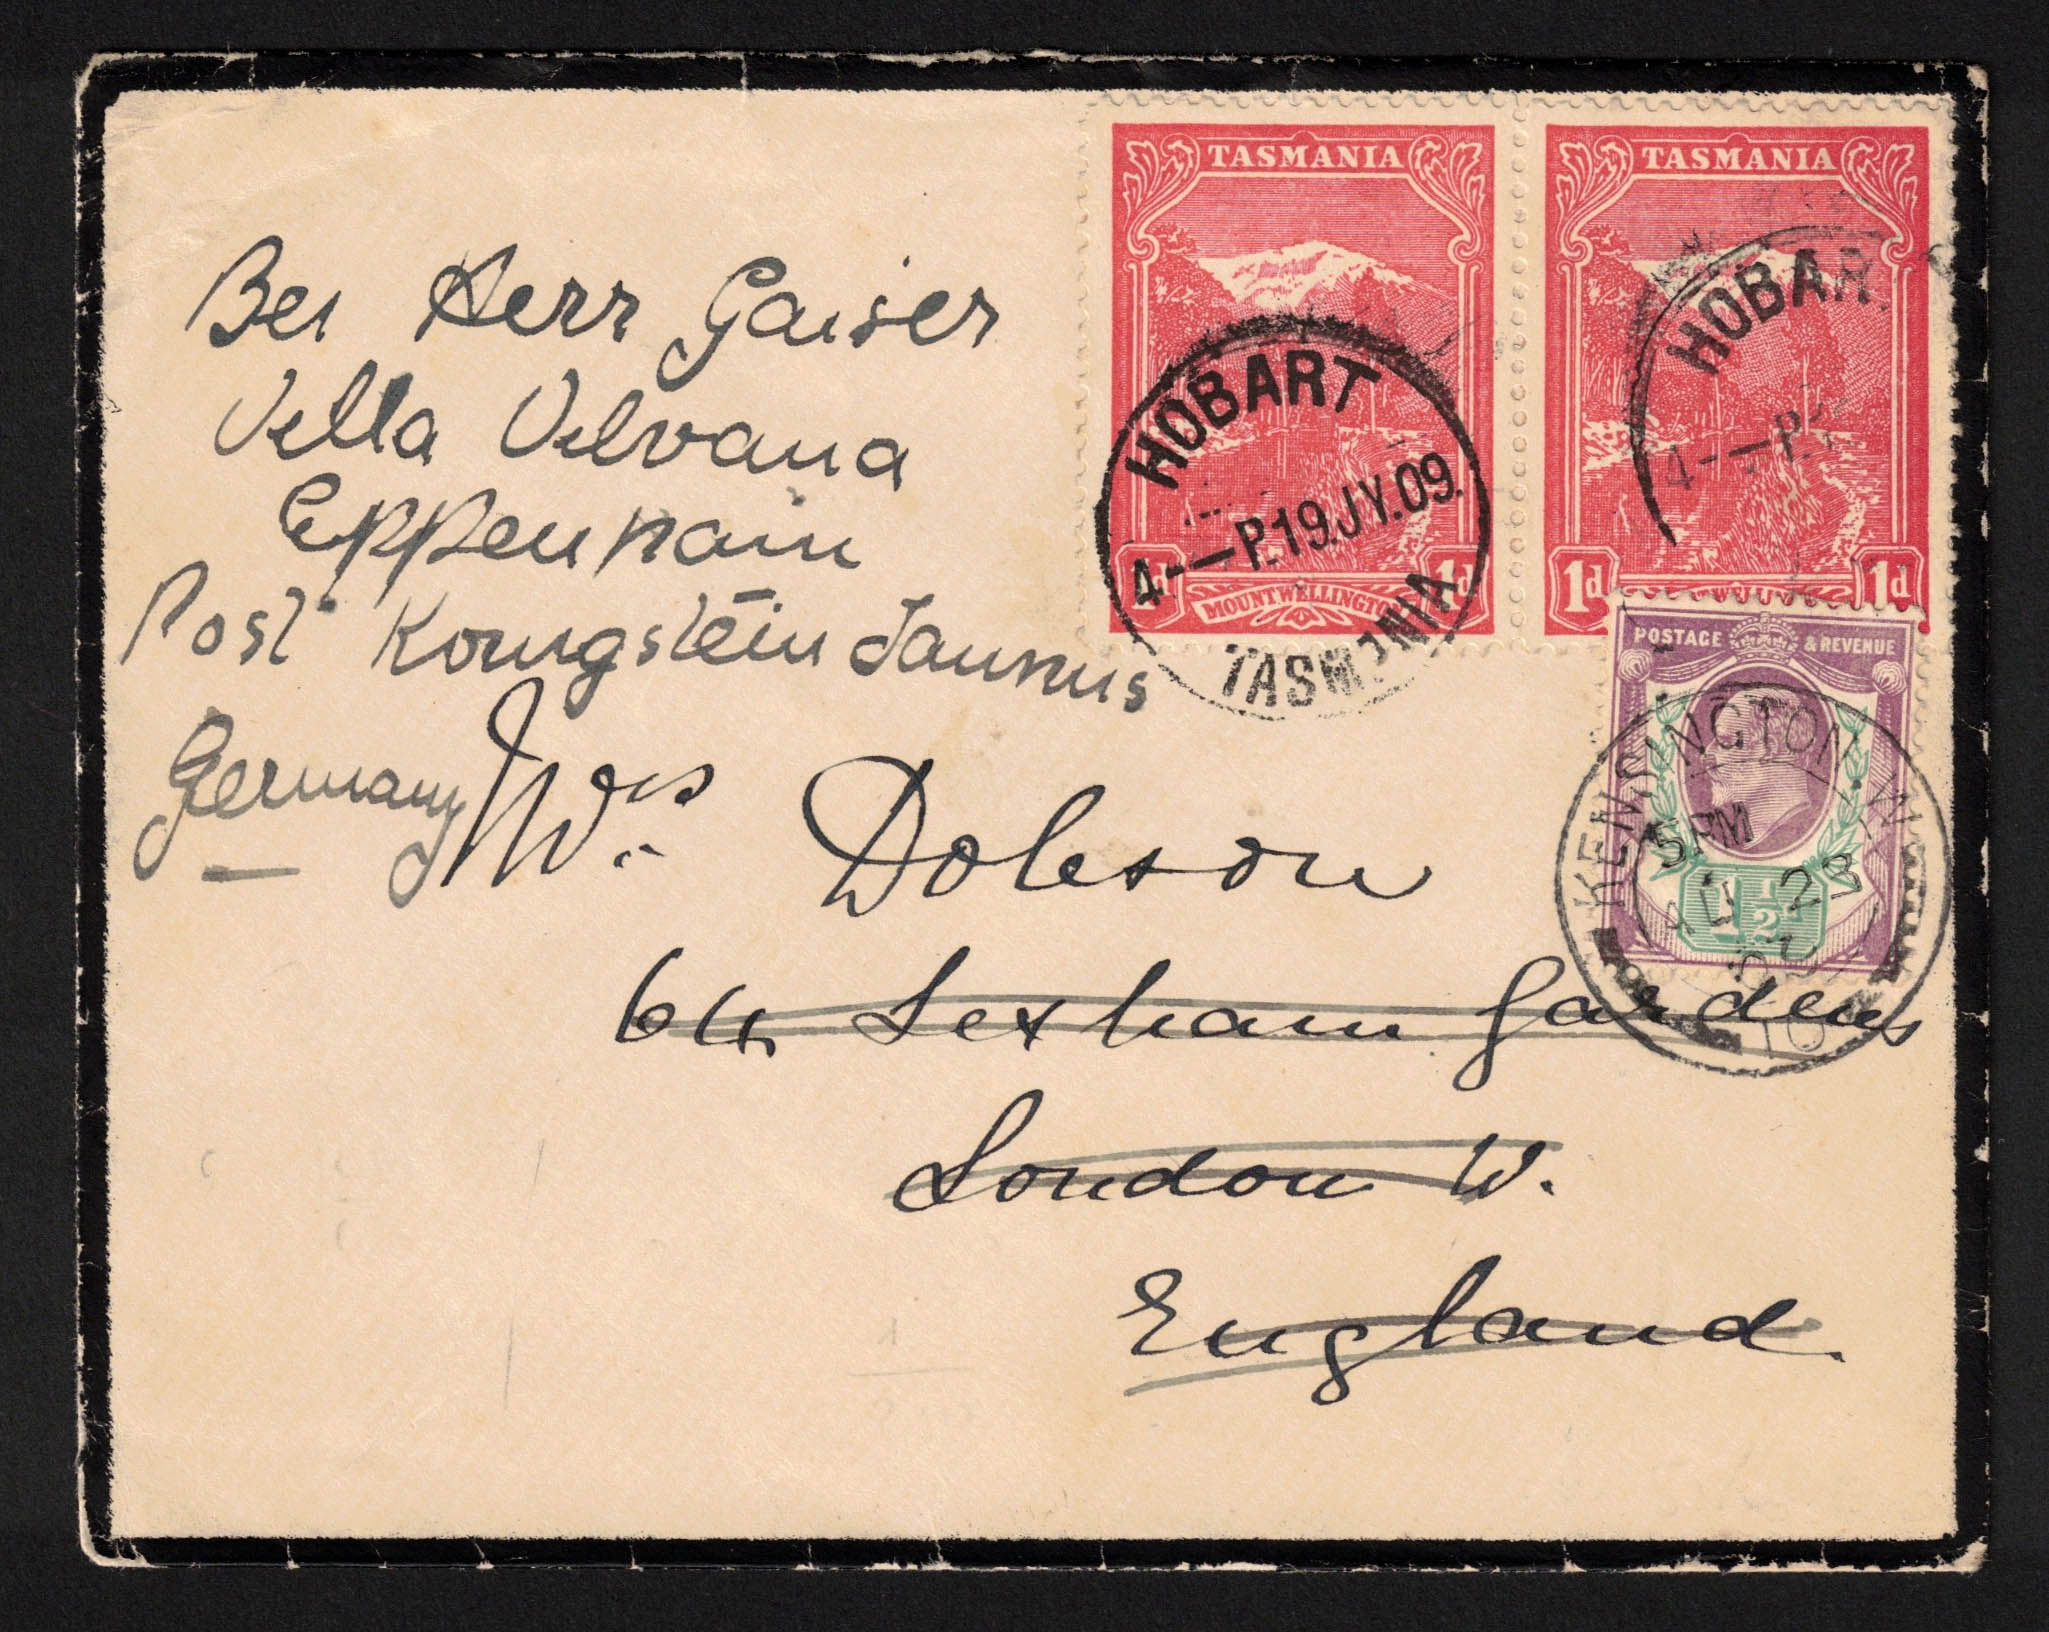 TASMANIA
TASMANIA
HOBART
4-—P.19.JY.09.
TASMANIA
HOBAR
4-—P.
1d 1d
MOUNT WELLINGTON
1d 1d
POSTAGE & REVENUE
KENSINGTON. W
5 PM
AU 23
1½
Bei Herr Gaiser
Villa
Eppenhain
Post Königstein Taunus
Germany
Mrs. Dobson
64 Lexham Gardens
London W.
England.